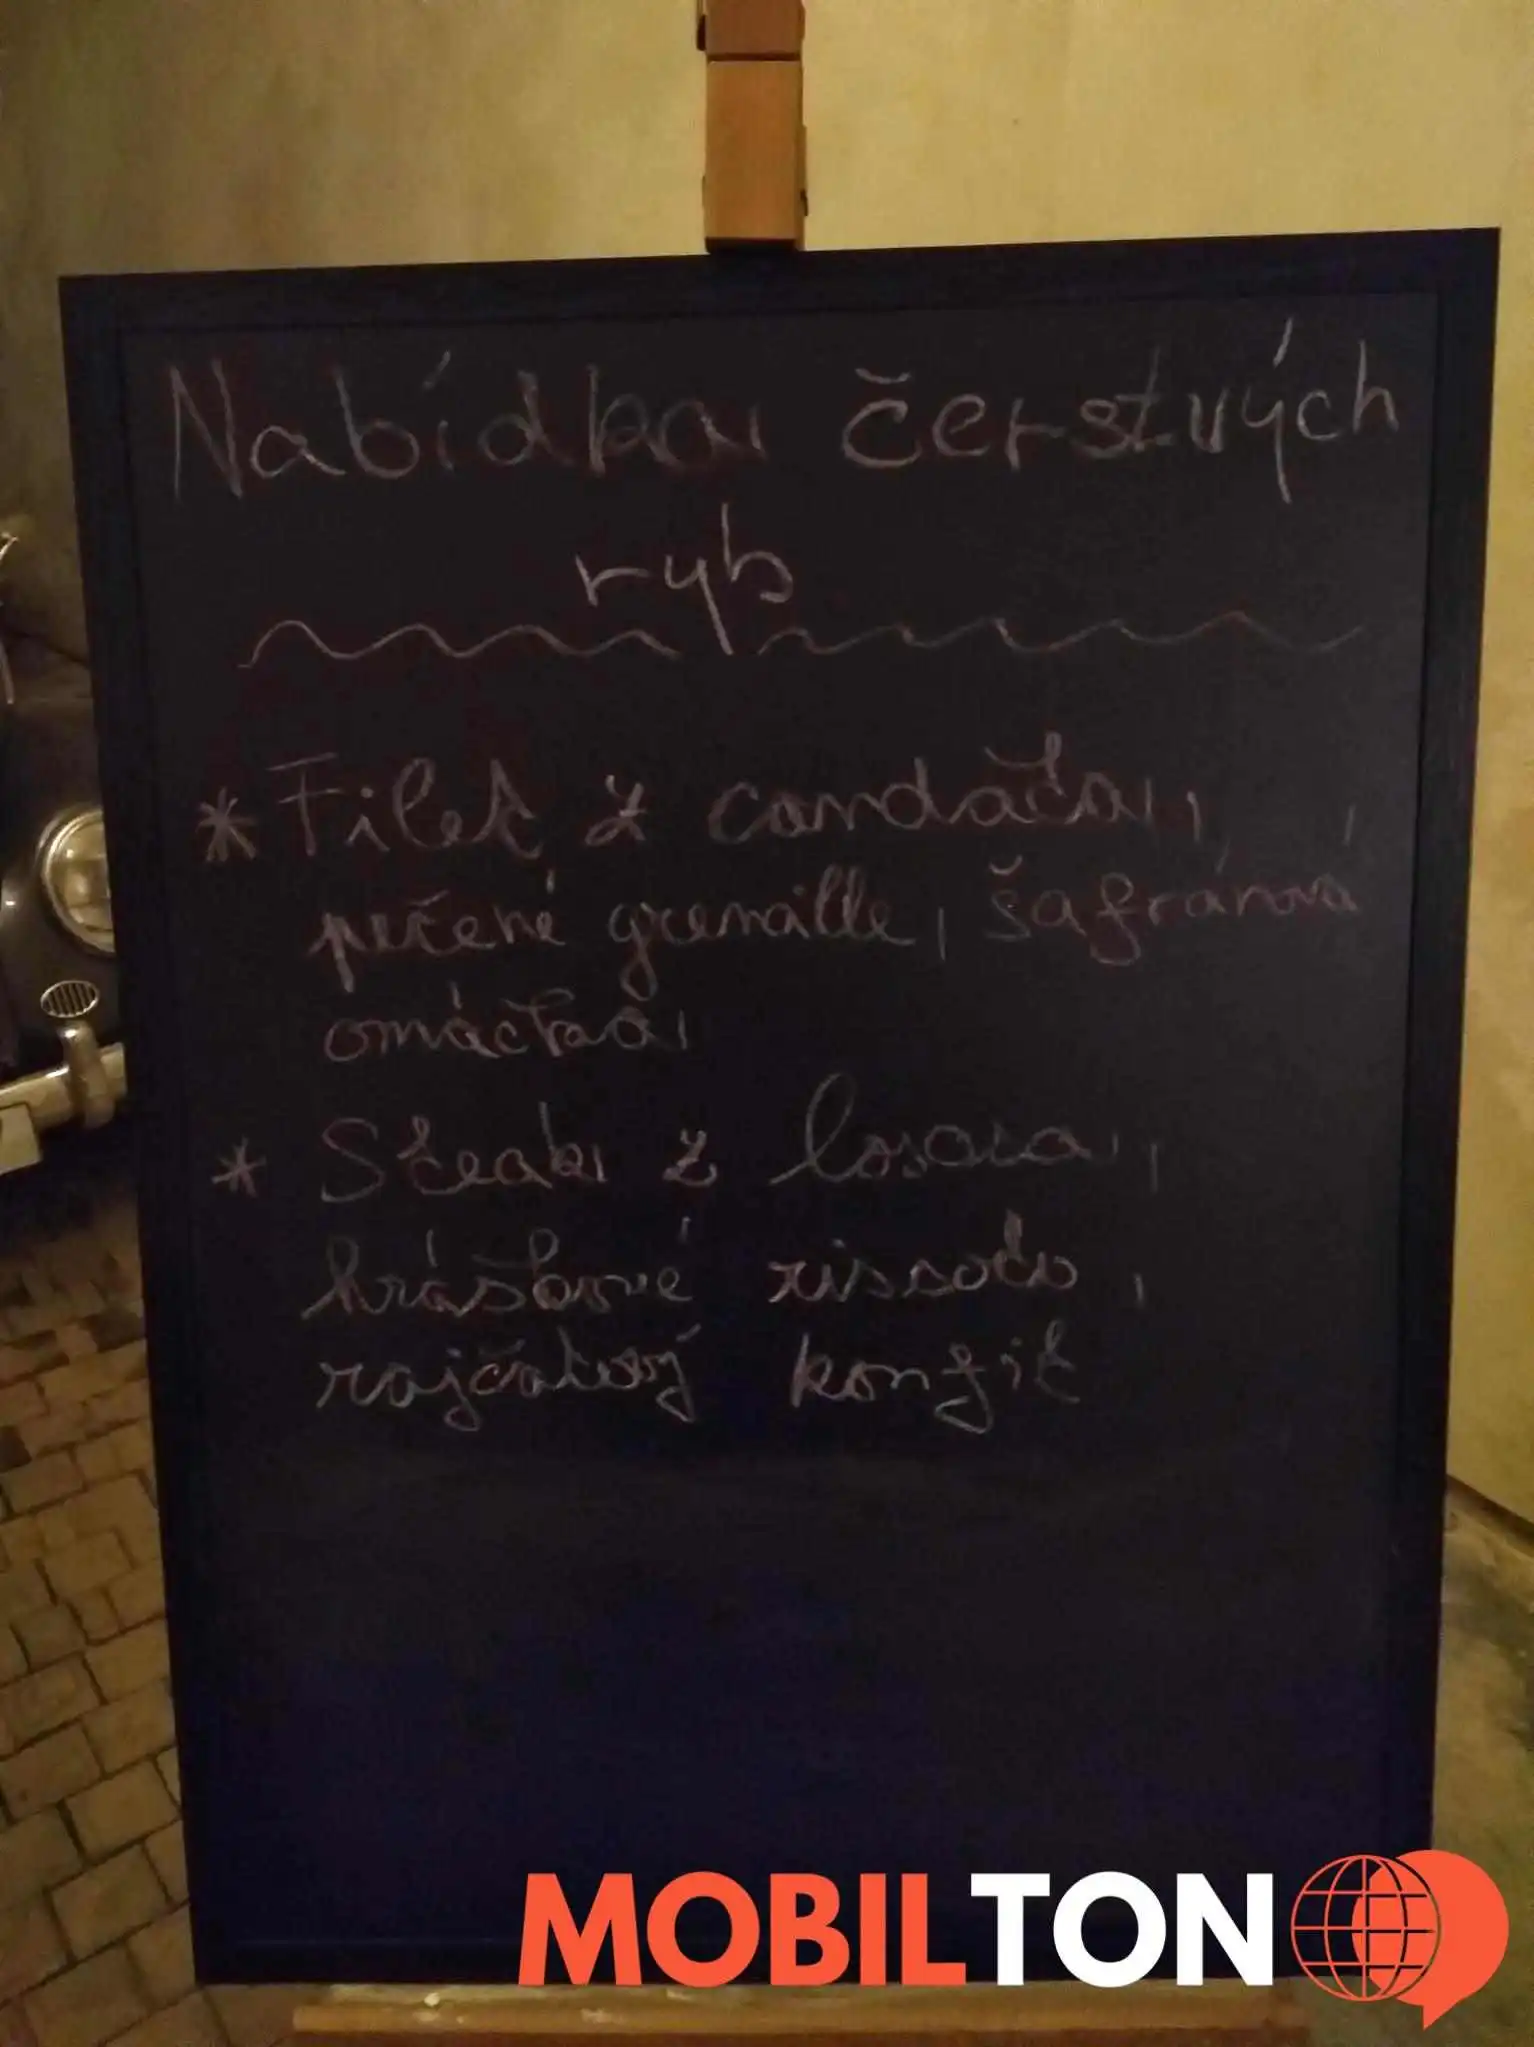 Nabídka čerstvých
ryb
* Filet z candáta,
pečené grenaille, šafránová
omáčka
* Steak z lososa,
hráškové rissoto,
rajčatový konfit
MOBILTON